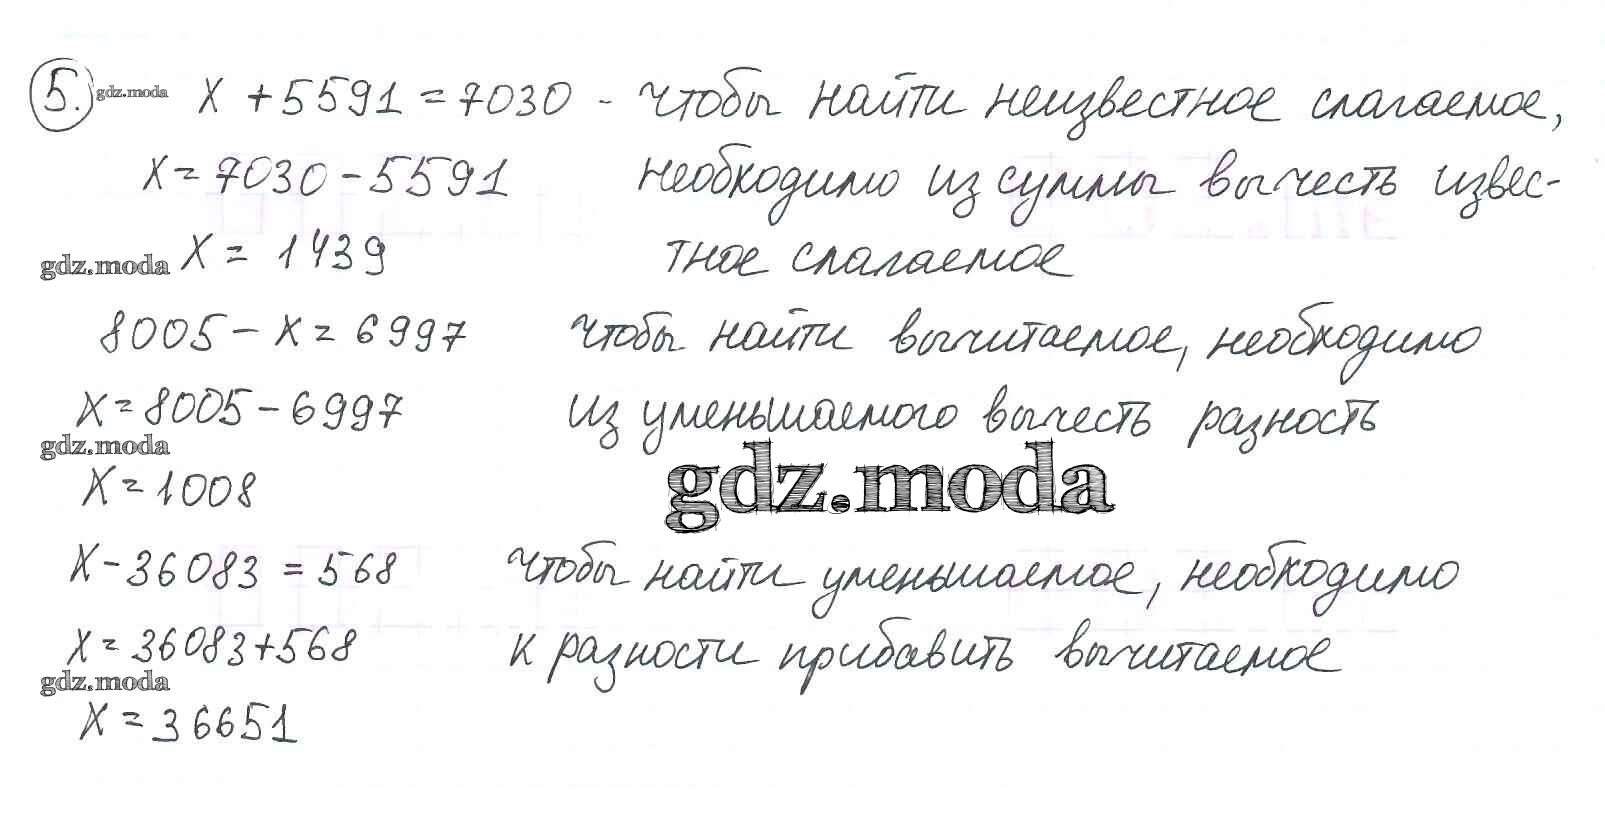 5. gdz.moda x + 5591 = 7030 - чтобы найти неизвестное слагаемое,
x = 7030 - 5591 необходимо из суммы вычесть извес-
gdz.moda x = 1439 тное слагаемое
8005 - x = 6997 чтобы найти вычитаемое, необходимо
x = 8005 - 6997 из уменьшаемого вычесть разность
gdz.moda
gdz.moda
x = 1008
x - 36083 = 568 чтобы найти уменьшаемое, необходимо
x = 36083 + 568 к разности прибавить вычитаемое
gdz.moda
x = 36651